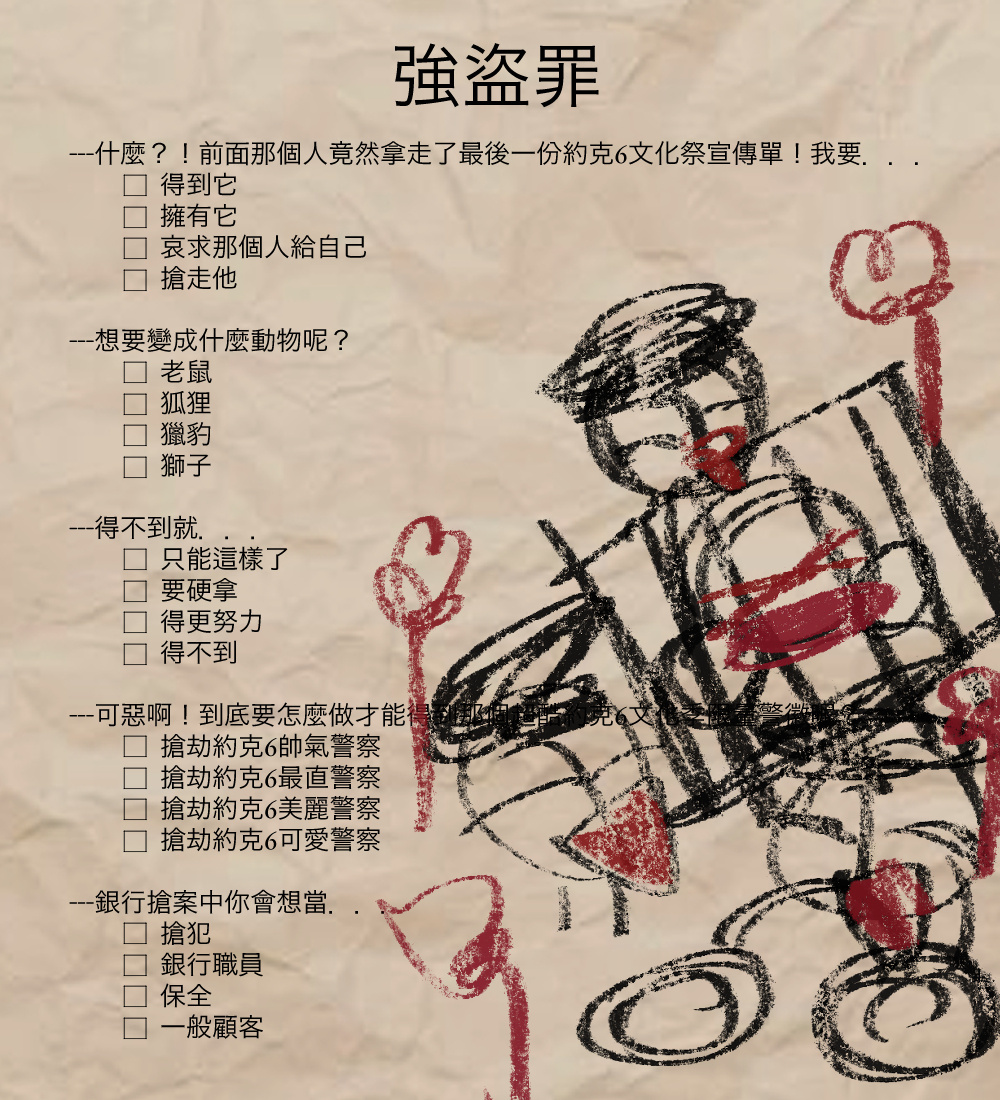 強盜罪
---什麼？！前面那個人竟然拿走了最後一份約克6文化祭宣傳單！我要. . .
□ 得到它
□ 擁有它
□ 哀求那個人給自己
□ 搶走他
---想要變成什麼動物呢？
□ 老鼠
□ 狐狸
□ 獵豹
□ 獅子
---得不到就. . .
□ 只能這樣了
□ 要硬拿
□ 得更努力
□ 得不到
---可惡啊！到底要怎麼做才能得到那個超酷約克6文化祭
□ 搶劫約克6帥氣警察
□ 搶劫約克6最直警察
□ 搶劫約克6美麗警察
□ 搶劫約克6可愛警察
---銀行搶案中你會想當. . .
□ 搶犯
□ 銀行職員
□ 保全
□ 一般顧客